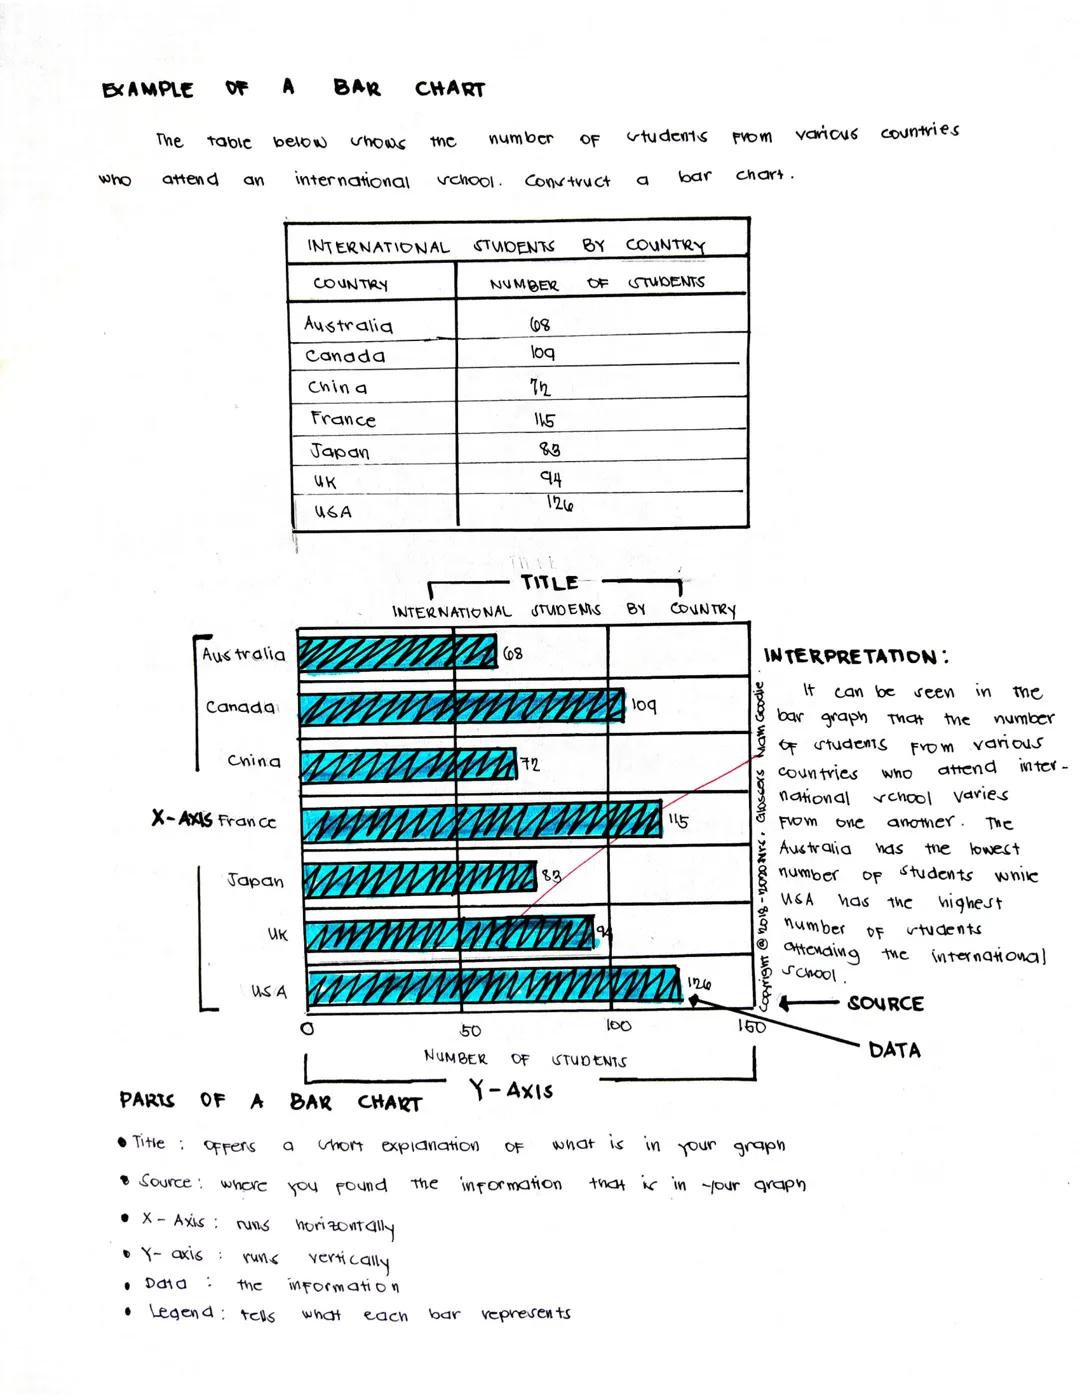 EXAMPLE OF A BAR CHART
The table below shows the number of students from various countries
who attend an international school. Construct a bar chart.
INTERNATIONAL STUDENTS BY COUNTRY
COUNTRY NUMBER OF STUDENTS
Australia 68
Canada 109
China 72
France 115
Japan 83
UK 94
USA 126
TITLE
INTERNATIONAL STUDENTS BY COUNTRY
Australia 68
Canada 109
China 72
X-AXIS France 115
Japan 83
UK 94
USA 126
0 50 100 150
NUMBER OF STUDENTS
Y-AXIS
Copyright @ 2018-2020 Mam Goodie.
INTERPRETATION:
It can be seen in the
bar graph that the number
of students from various
countries who attend inter-
national school varies
from one another. The
Australia has the lowest
number of students while
USA has the highest
number of students
attending the international
school.
SOURCE
DATA
PARTS OF A BAR CHART
• Title: offers a short explanation of what is in your graph
• Source: where you found the information that is in your graph
• X-Axis: runs horizontally
• Y-axis: runs vertically
• Data: the information
• Legend: tells what each bar represents